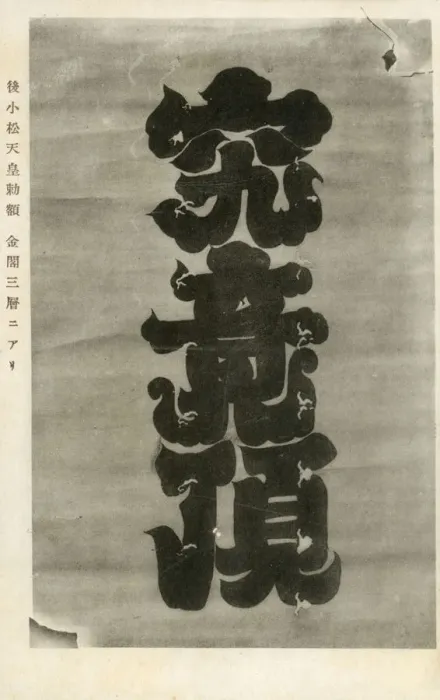 後小松天皇勅額 金閣三層ニアリ
究竟頂